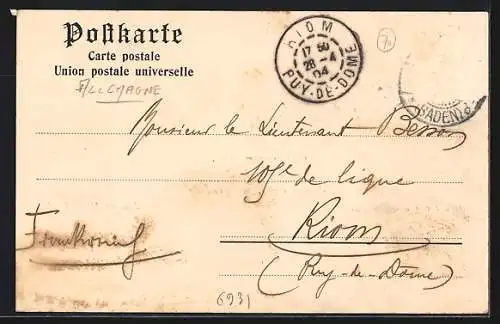 Postkarte
Carte postale
Union postale universelle
ALLEMAGNE
RIOM
17 50
28 -4
04
PUY-DE-DOME
BADEN
70
Monsieur le Lieutenant Besson
105e de ligne
Riom
(Puy-de-Dome)
Frankreich
6931